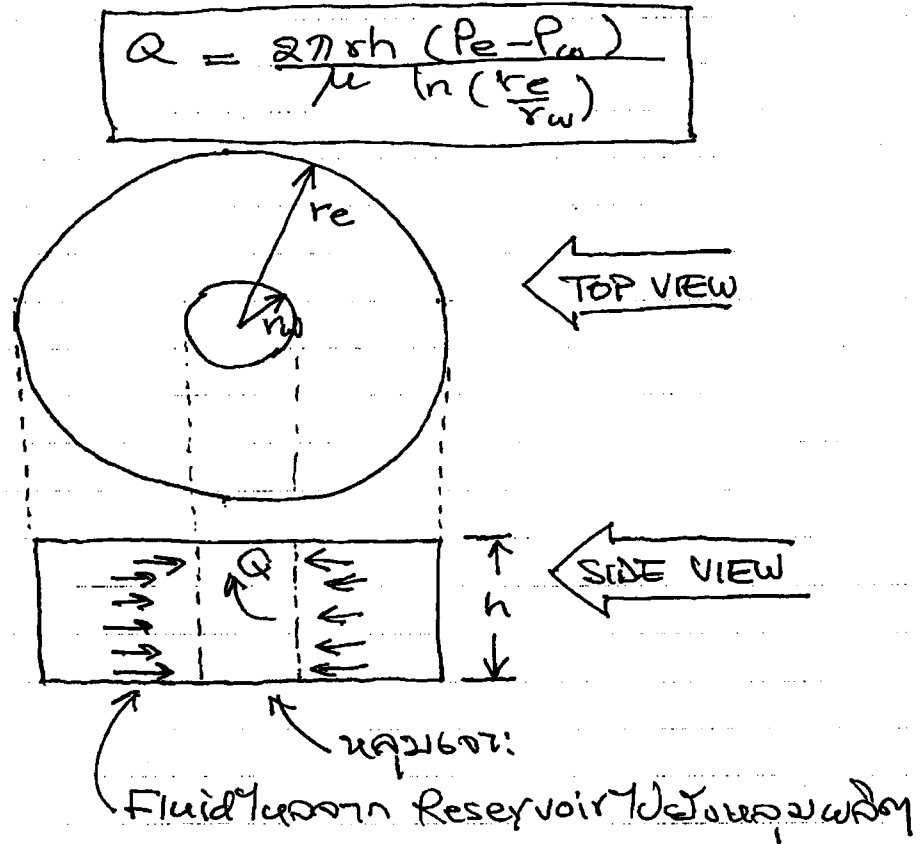 Q = 2πrh (Pe-Pw) / μ ln (re/rw)
re
rw
TOP VIEW
Q
h
SIDE VIEW
หลุมเจาะ
Fluidไหลจาก Reservoirไปยังหลุมผลิต